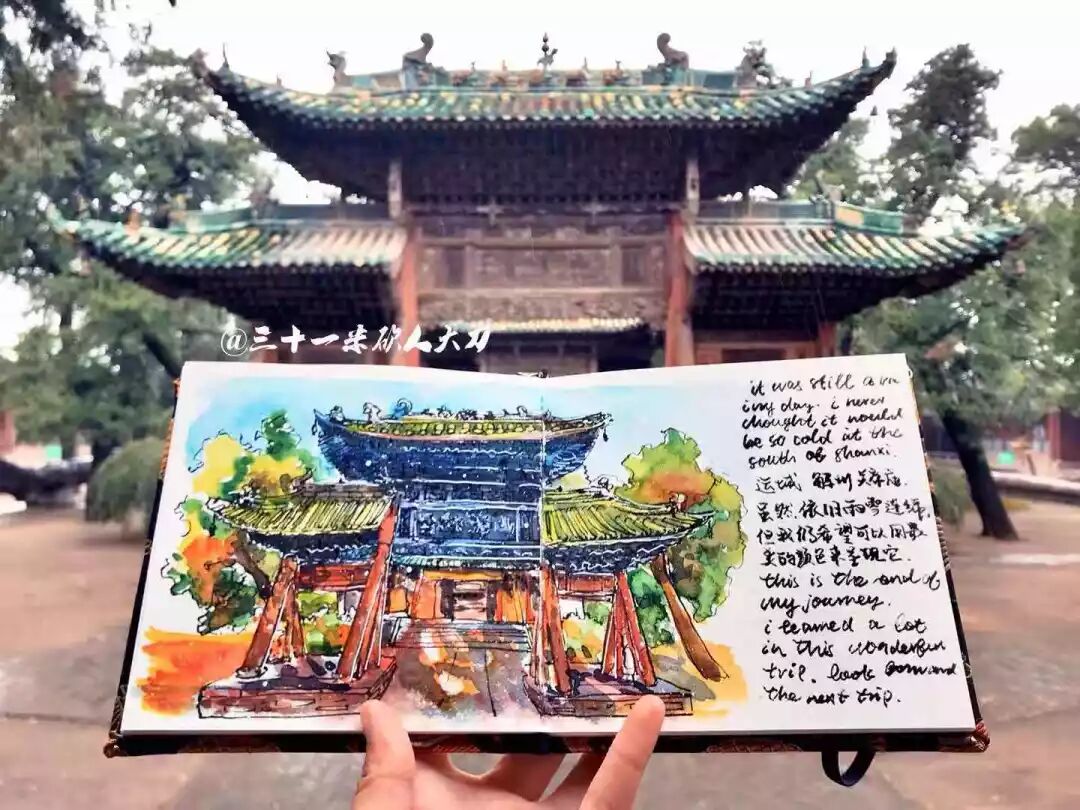 @三十一米砍人大刀
it was still a ra
iny day. i never
thought it would
be so cold at the
south of shanxi.
运城 解州关帝庙.
虽然依旧雨雪连绵,
但我们希望可以用最
美的颜色来呈现它.
this is the end of
my journey.
i learned a lot
in this wonderful
trip. look forward
the next trip.